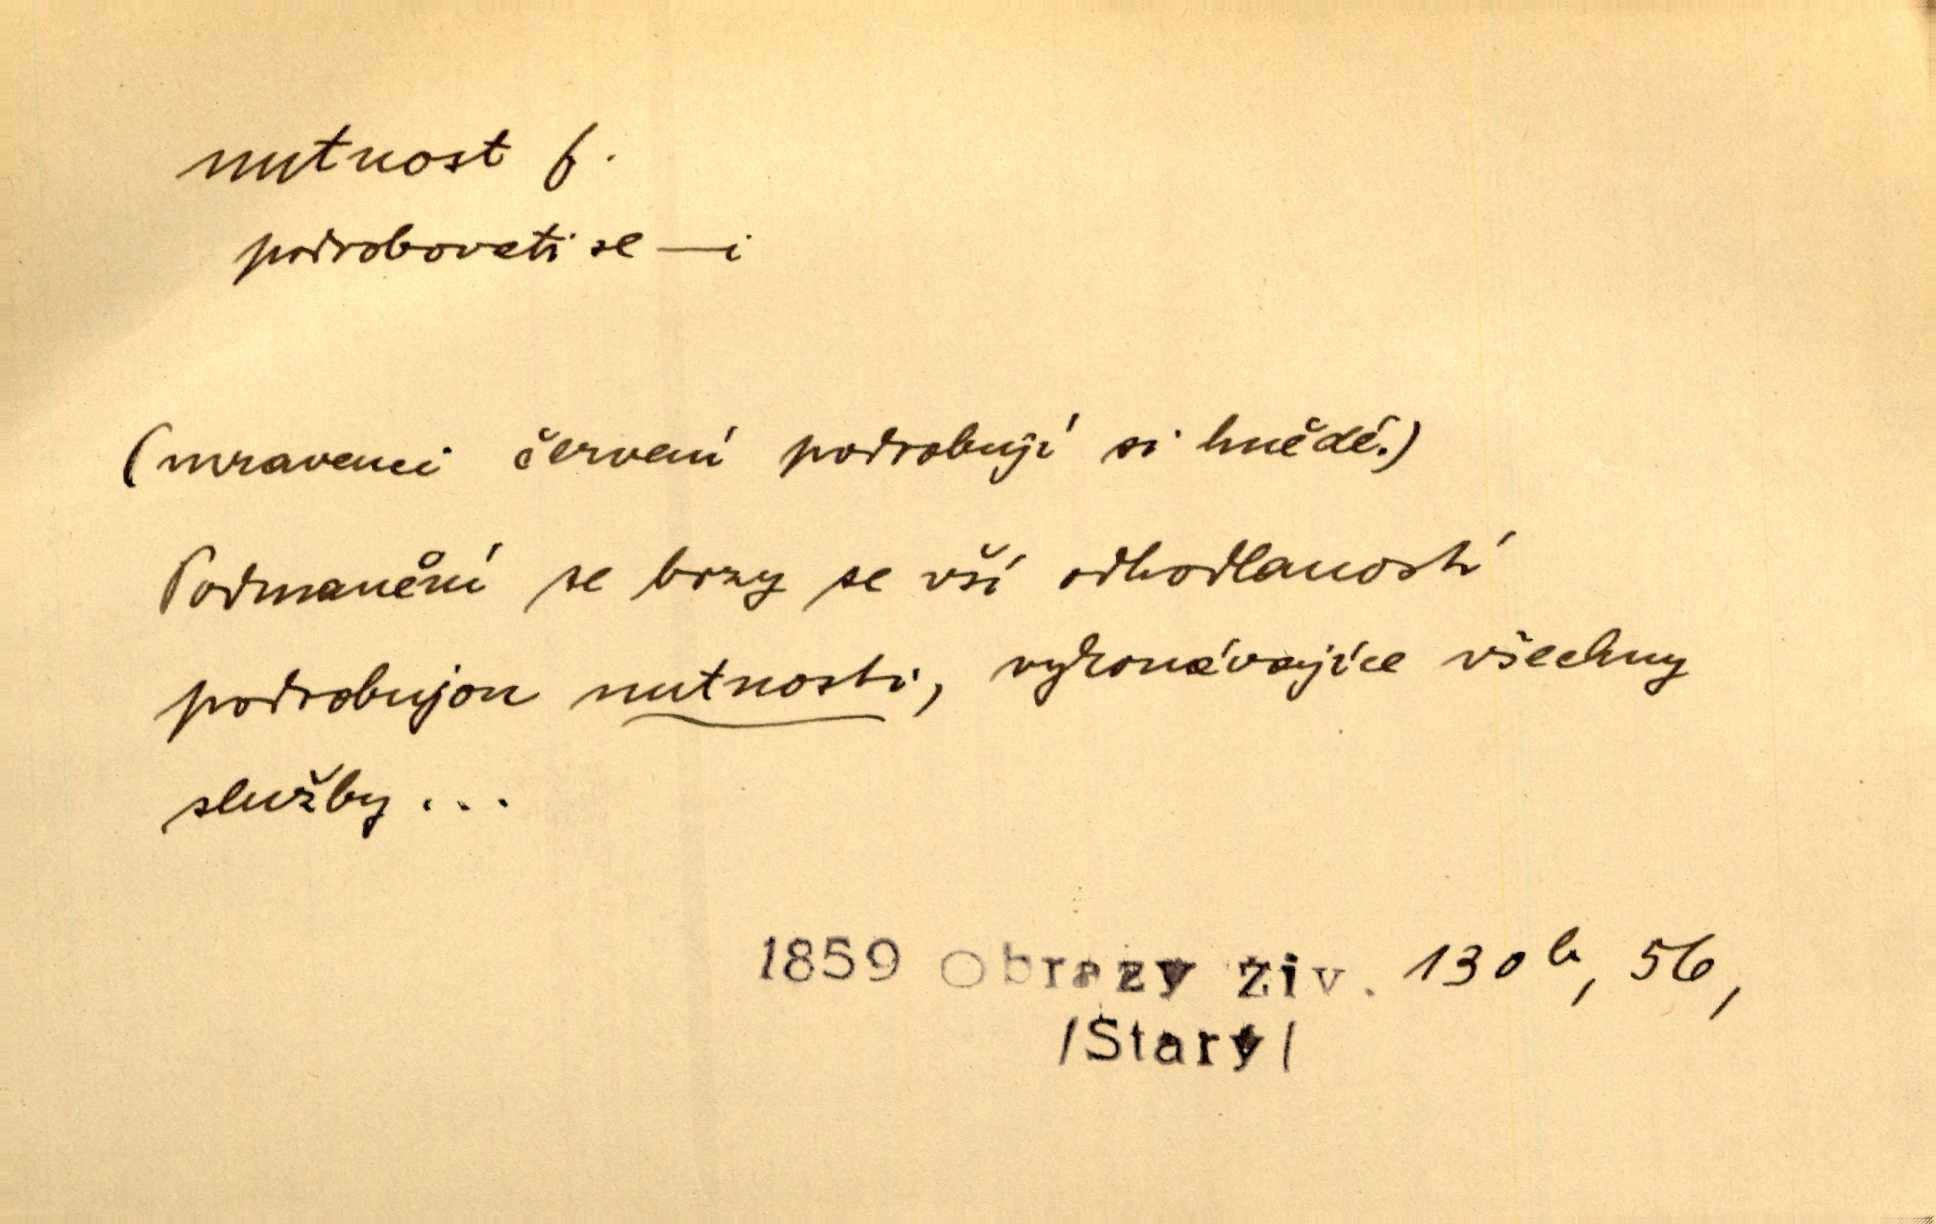 nutnost f.
podrobovati se —i
(mravenci červení podrobují si hnědé.)
Podmanění se brzy se vší odhodlaností
podrobujou nutnosti, vykonávajíce všechny
služby...
1859 Obrazy živ. 130b, 56,
/Starý/